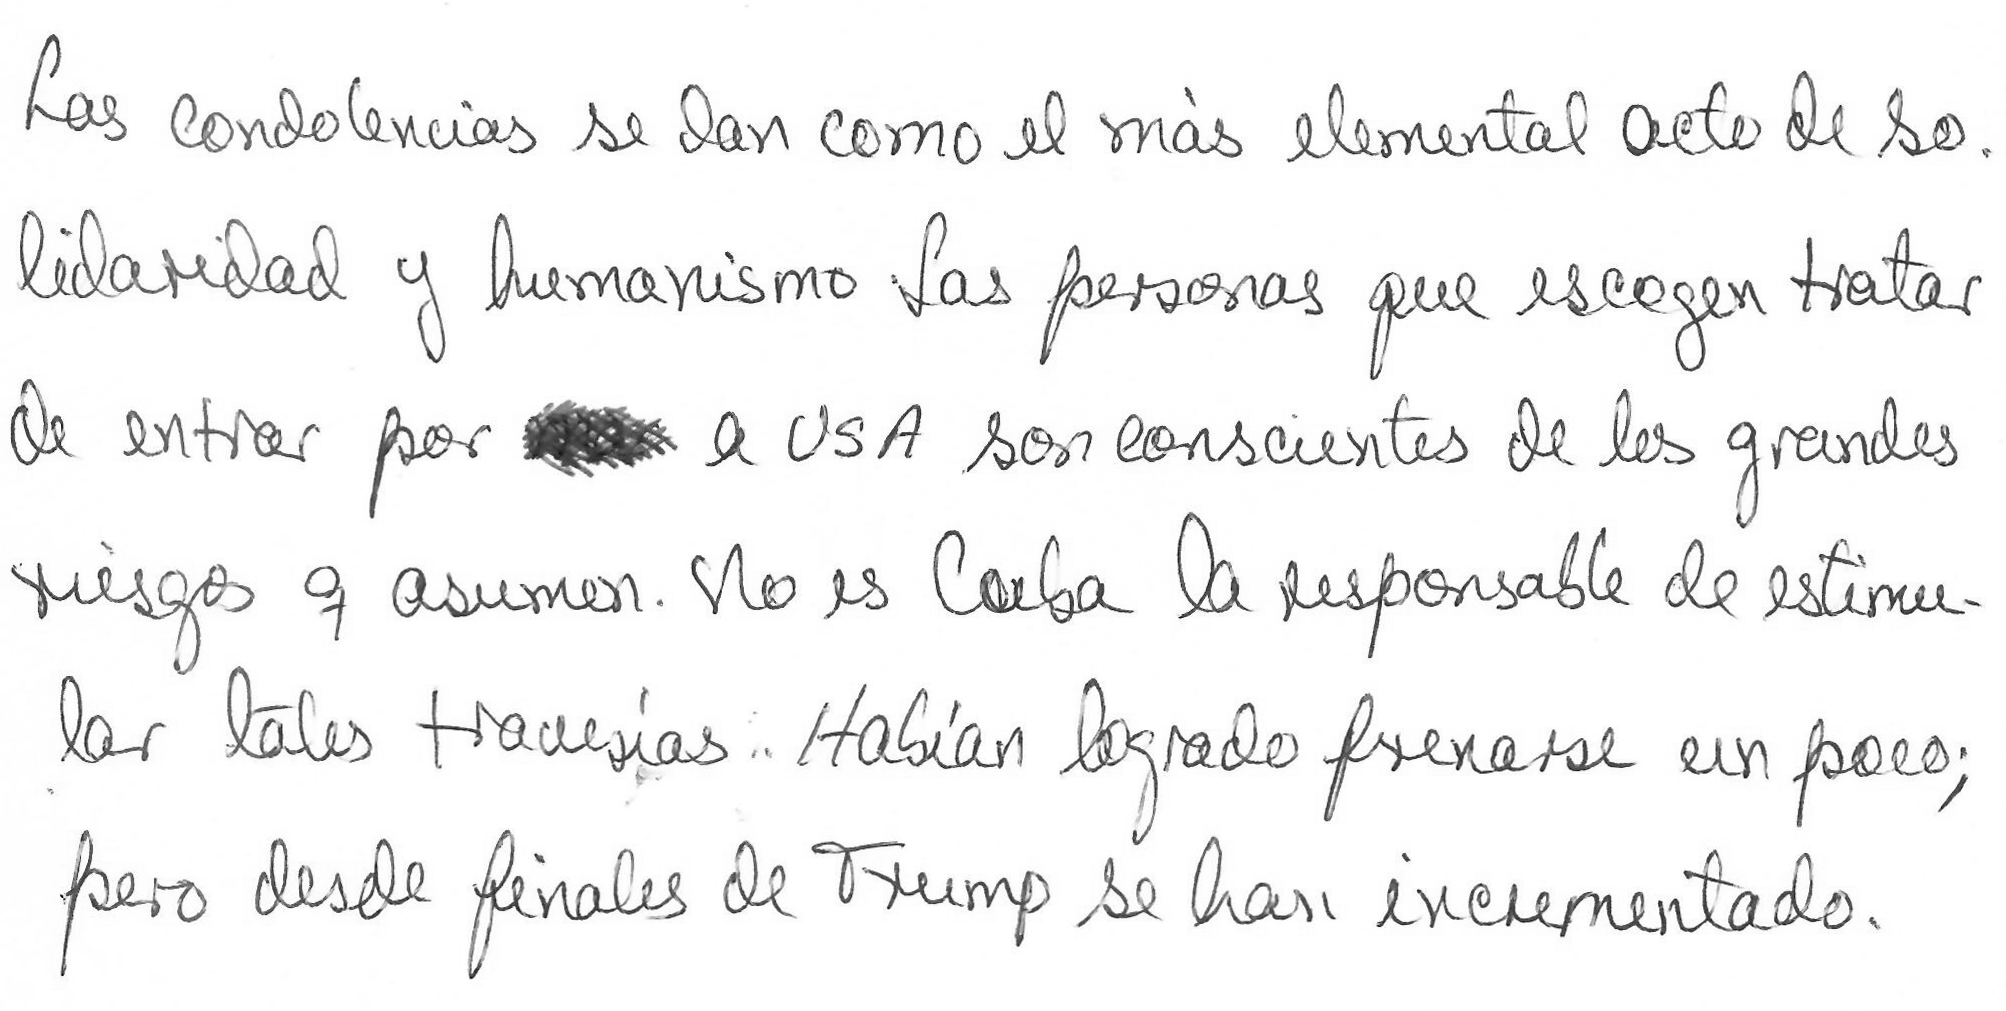 Las condolencias se dan como el más elemental acto de so.
lidaridad y humanismo. Las personas que escogen tratar
de entrar por a USA son conscientes de los grandes
riesgos q asumen. No es Cuba la responsable de estimu-
lar tales travesías. Habían logrado frenarse un poco;
pero desde finales de Trump se han incrementado.